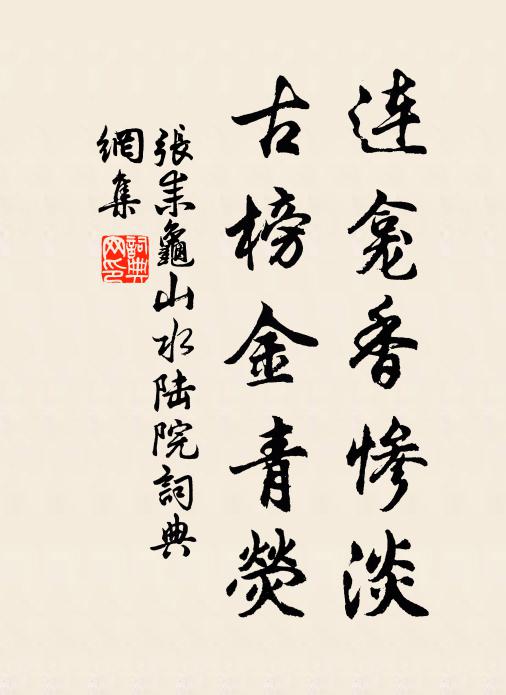 连龛香惨淡
古榜金青熒
張耒龜山水陆院詞典
網集
詞典
网印